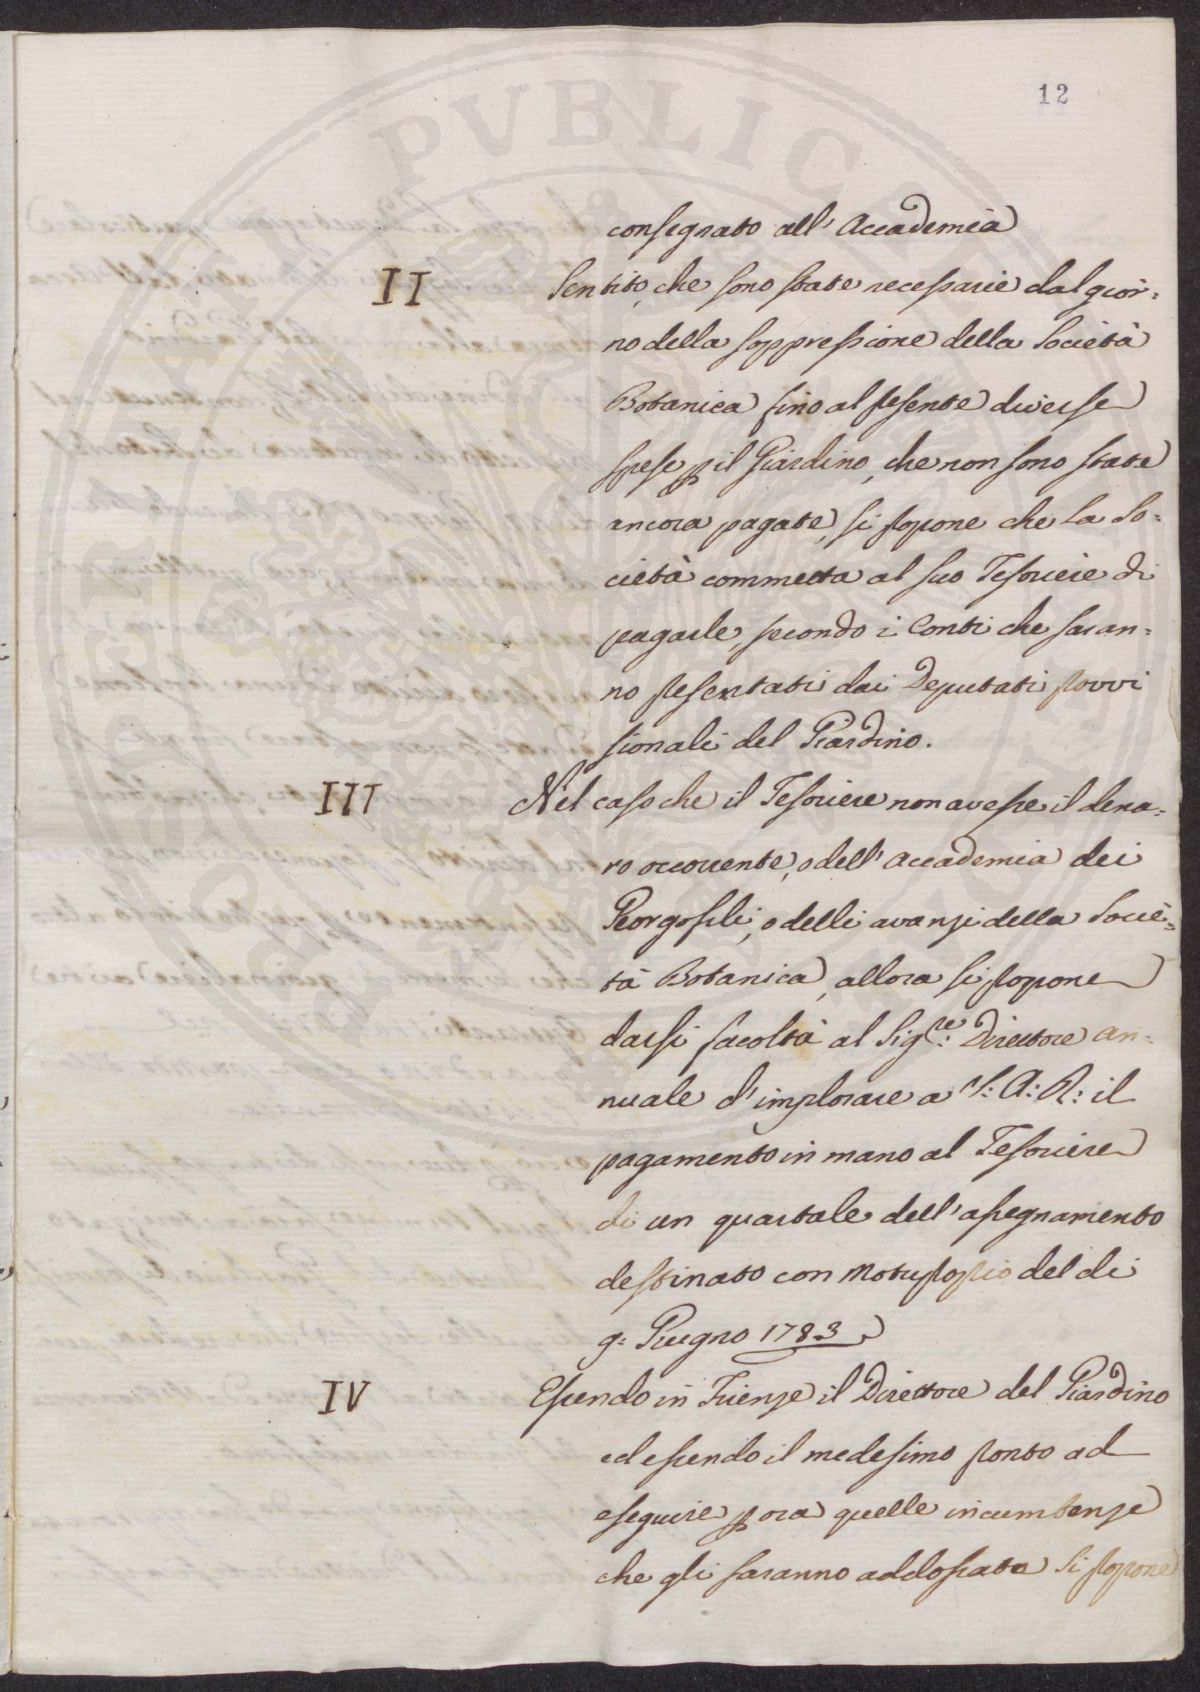 12
consegnato all' Accademia
II Sentito, che sono state necessarie dal gior=
no della soppressione della Società
Botanica fino al presente diverse
spese p il Giardino, che non sono state
ancora pagate, si propone che la So=
cietà commetta al suo Tesoriere di
pagarle, secondo i Conti che saran=
no presentati dai Deputati provvi
sionali del Giardino.
III Nel caso che il Tesoriere non avesse il dena=
ro occorrente, o dell' Accademia dei
Georgofili, o delli avanzi della Socie=
tà Botanica, allora si propone
darsi facoltà al Sig.re: Direttore an=
nuale d'implorare a S: A: R: il
pagamento in mano al Tesoriere
di un quartale dell'assegnamento
destinato con Motuproprio del di
9: Giugno 1783
IV Essendo in Firenze il Direttore del Giardino
ed essendo il medesimo pronto ad
eseguire p ora quelle incumbenze
che gli saranno addossate si propone
PVBLICA